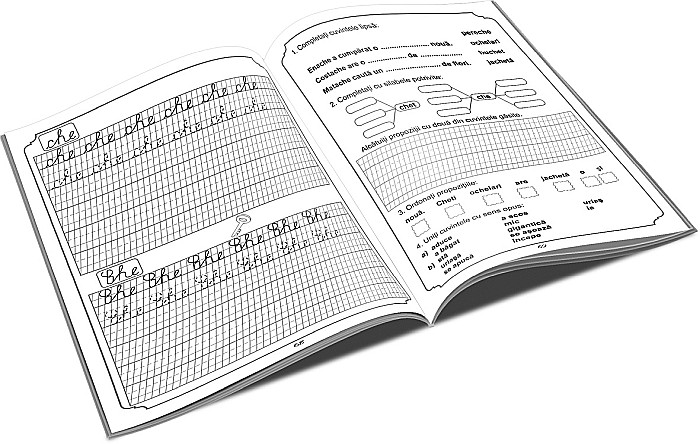 che
che che che che che che
che che che che che che
Che
Che Che Che Che Che Che
Che Che Che Che Che Che
1. Completați cuvintele lipsă:
Enache a cumpărat o ........................ nouă. pereche
Costache are o .............. de .............. ochelari
Malache caută un .................. de flori. buchet
jachetă
2. Completați cu silabele potrivite:
chet che
Alcătuiți propoziții cu două din cuvintele găsite.
3. Ordonați propozițiile:
nouă. Cheti ochelari are jachetă o și
4. Uniți cuvintele cu sens opus:
a) aduce a scos uriaș
a băgat mic ia
stă gigantică
b) uriașă se așează
se apucă începe